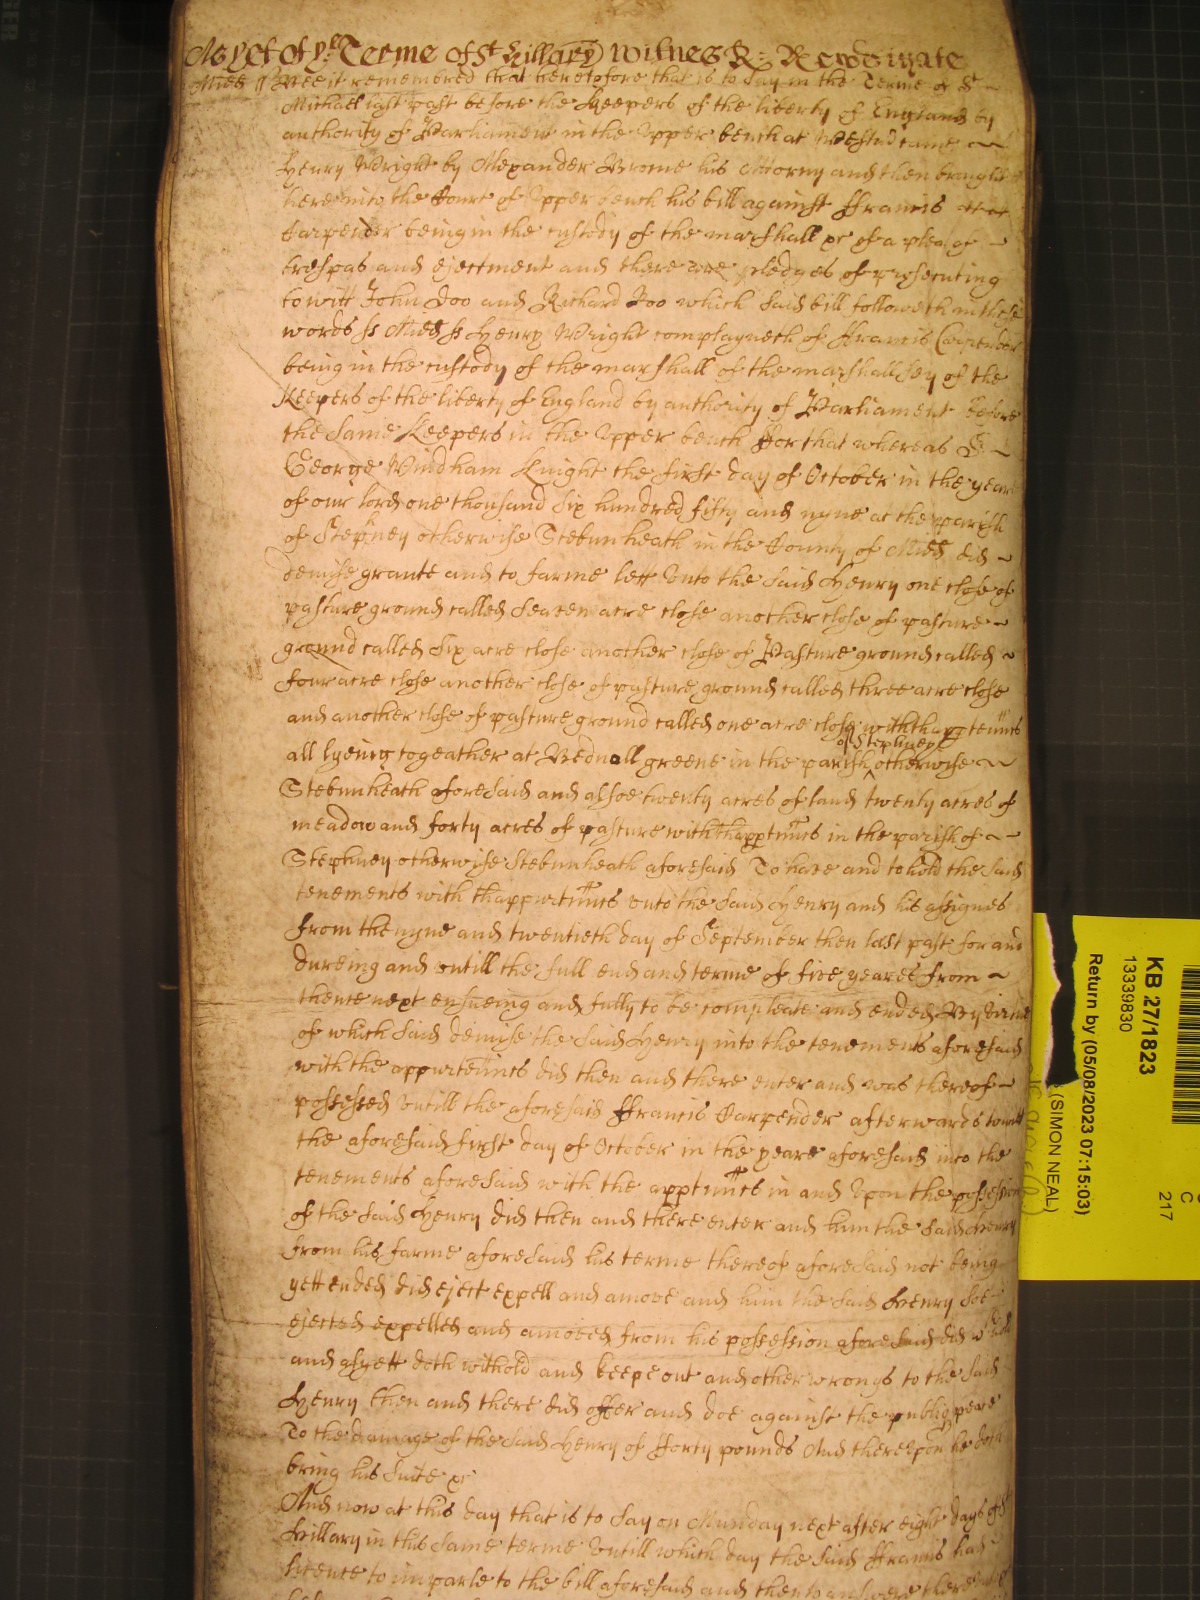 As yet of ye Terme of St Hillary witnes R:
Midd ss Bee it remembred that heretofore that is to say in the Terme of St
Michael last past before the Keepers of the liberty of England by
authority of Parliament in the Upper bench at Westm came
Henry Wright by Alexander Brome his Attorny and then brought
here into the Court of Upper bench his bill against Francis
Carpender being in the custody of the marshall &c of a plea of
trespas and ejectment and there are pledges of prosecuting
to witt John Doo and Richard Roo which said bill followeth in these
words ss Midd ss Henry Wright complayneth of Francis Carpender
being in the custody of the marshall of the marshallsey of the
Keepers of the liberty of England by authority of Parliament before
the same Keepers in the Upper bench For that whereas Sr
George Windham Knight the first day of October in the yeare
of our lord one thousand six hundred fifty and nyne at the parish
of Stepney otherwise Stebunheath in the County of Midd did
demise grante and to farme lett unto the said Henry one close of
pasture ground called seaven acre close another close of pasture
ground called six acre close another close of Pasture ground called
four acre close another close of pasture ground called three acre close
and another close of pasture ground called one acre close with thapptennts
all lyeing togeather at Bednall greene in the parish of Stephney otherwise
Stebunheath aforesaid and alsoe twenty acres of land twenty acres of
meadow and forty acres of pasture with thapptnnts in the parish of
Stephney otherwise Stebunheath aforesaid To have and to hold the said
tenements with thappurtnnts unto the said Henry and his assignes
from the nyne and twentieth day of September then last past for and
dureing and untill the full end and terme of five yeares from
thence next ensueing and fully to be compleate and ended By virtue
of which said demise the said Henry into the tenements aforesaid
with the appurtennts did then and there enter and was thereof
possessed Untill the aforesaid Francis Carpender afterwards to witt
the aforesaid first day of October in the yeare aforesaid into the
tenements aforesaid with the apptnnts in and Upon the possession
of the said Henry did then and there enter and him the said Henry
from his farme aforesaid his terme thereof aforesaid not being
yett ended did eject expell and amove and him the said Henry soe
ejected expelled and amoved from his possession aforesaid did withold
and as yett doth withold and keepe out and other wrongs to the said
Henry then and there did offer and doe against the publiq peace
To the damage of the said Henry of Forty pounds And thereupon he doth
bring his suite &c
And now at this day that is to say on Munday next after eight days of St
Hillary in this same terme Untill which day the said Francis had
licence to imparle to the bill aforesaid and then to answere there
KB 27/1823
13339830
Return by (05/08/2023 07:15:03)
(SIMON NEAL)
C
217